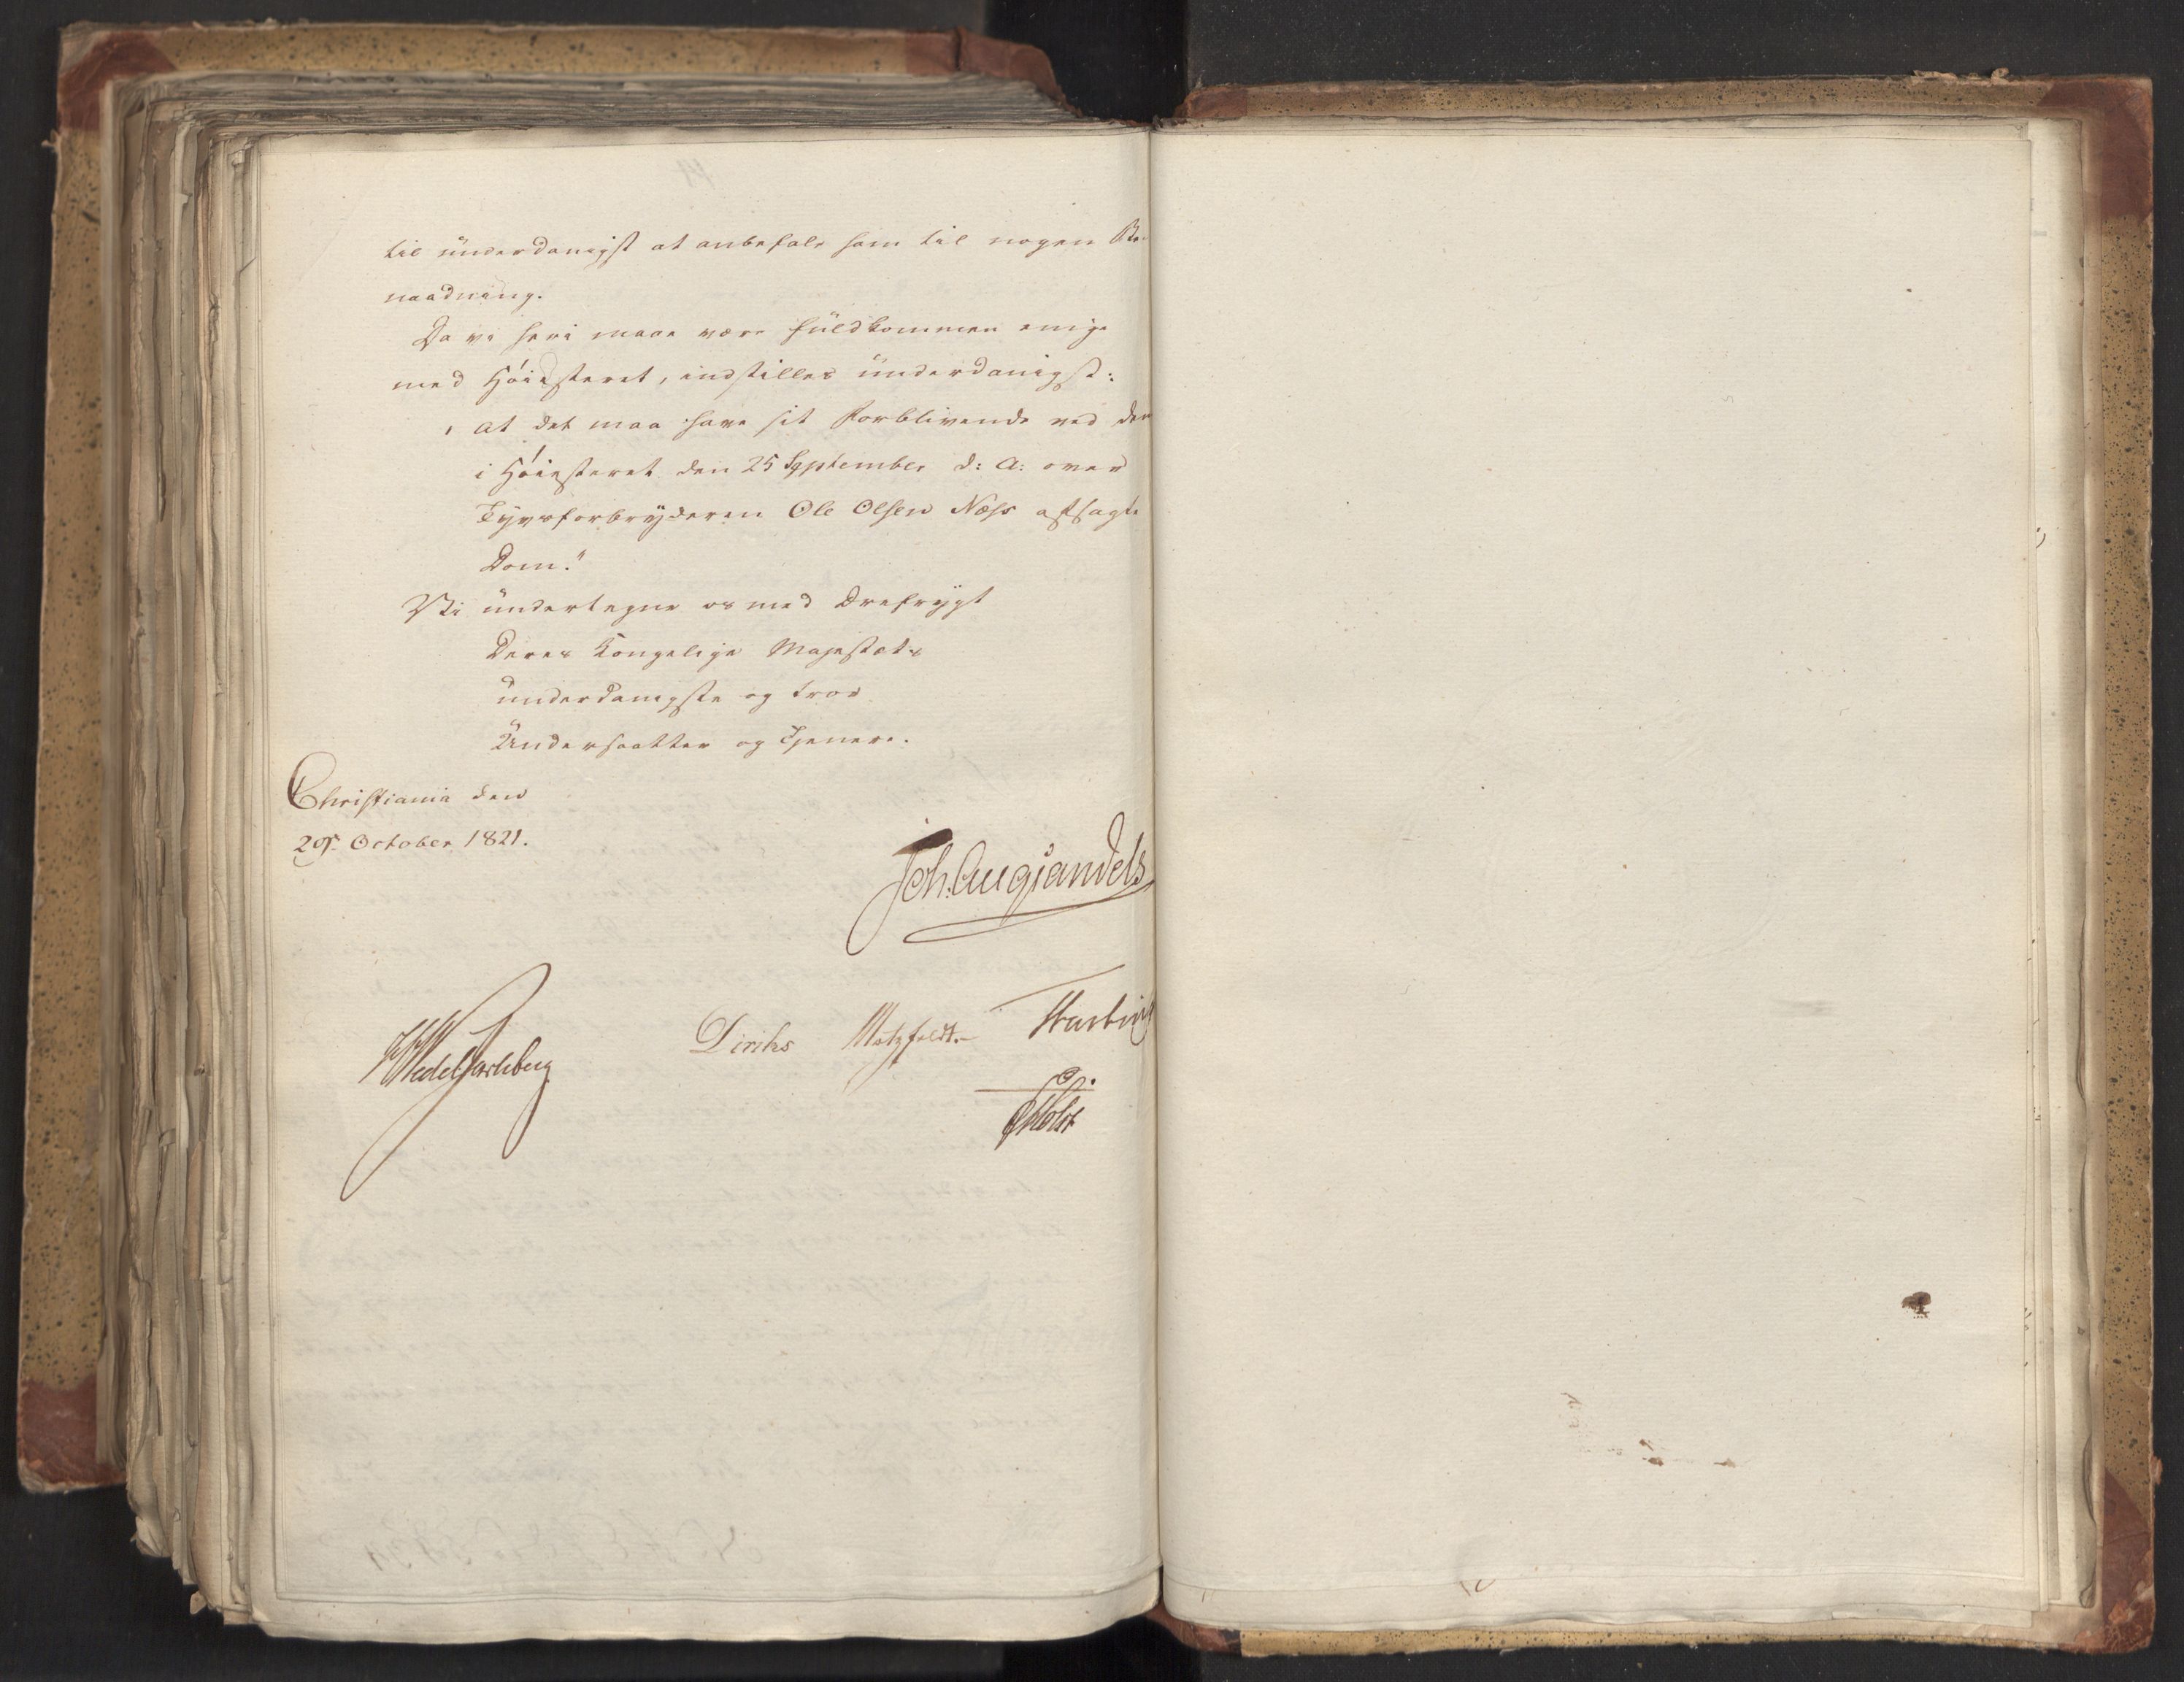 til underdanigst at anbefale ham til nogen Be-
naadning.
Da vi heri maae være fuldkommen enige
med Høiesteret, indstilles underdanigst:
at det maa have sit Forblivende ved den
i Høiesteret den 25 September d: A: over
Tyvsforbryderen Ole Olsen Næss afsagte
Dom."
Vi undertegne os med Ærefrygt
Deres Kongelige Majestæts
underdanigste og troe
Undersaatter og Tjenere.
Christiania den
29 October 1821.
Joh: Aug Sandels
HWedelJarlsberg
Diriks Motzfeldt.
Holst